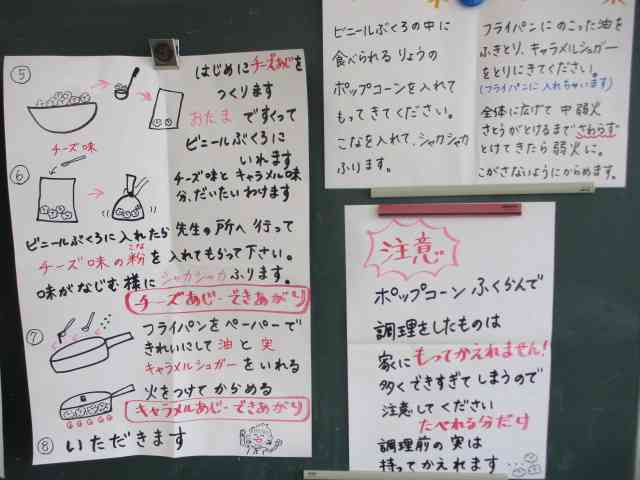 ⑤
はじめにチーズあじを
つくります
おたま ですくって
ビニールぶくろに
いれます
チーズ味
⑥
チーズ味とキャラメル味
分、だいたいわけます
ビニールぶくろに入れたら先生の所へ行って
チーズ味の粉を入れてもらって下さい。
こな
味がなじむ様にシャカシャカふります。
チーズあじ-できあがり
⑦
フライパンをペーパーで
きれいにして油と実
キャラメルシュガーをいれる
火をつけてからめる
キャラメルあじ-できあがり
⑧ いただきます
ビニールぶくろの中に
食べられるりょうの
ポップコーンを入れて
もってきてください。
こなを入れて、シャカシャカ
ふります。
フライパンにのこった油を
ふきとり、キャラメルシュガー
をとりにきてください。
(フライパンに入れちゃいます)
全体に広げて 中弱火
さとうがとけるまでさわらず
とけてきたら弱火に。
こがさないようにからめます。
注意
ポップコーンふくらんで
調理をしたものは
家にもってかえれません!
多くできすぎてしまうので
注意してください
たべれる分だけ
調理前の実は
持ってかえれます